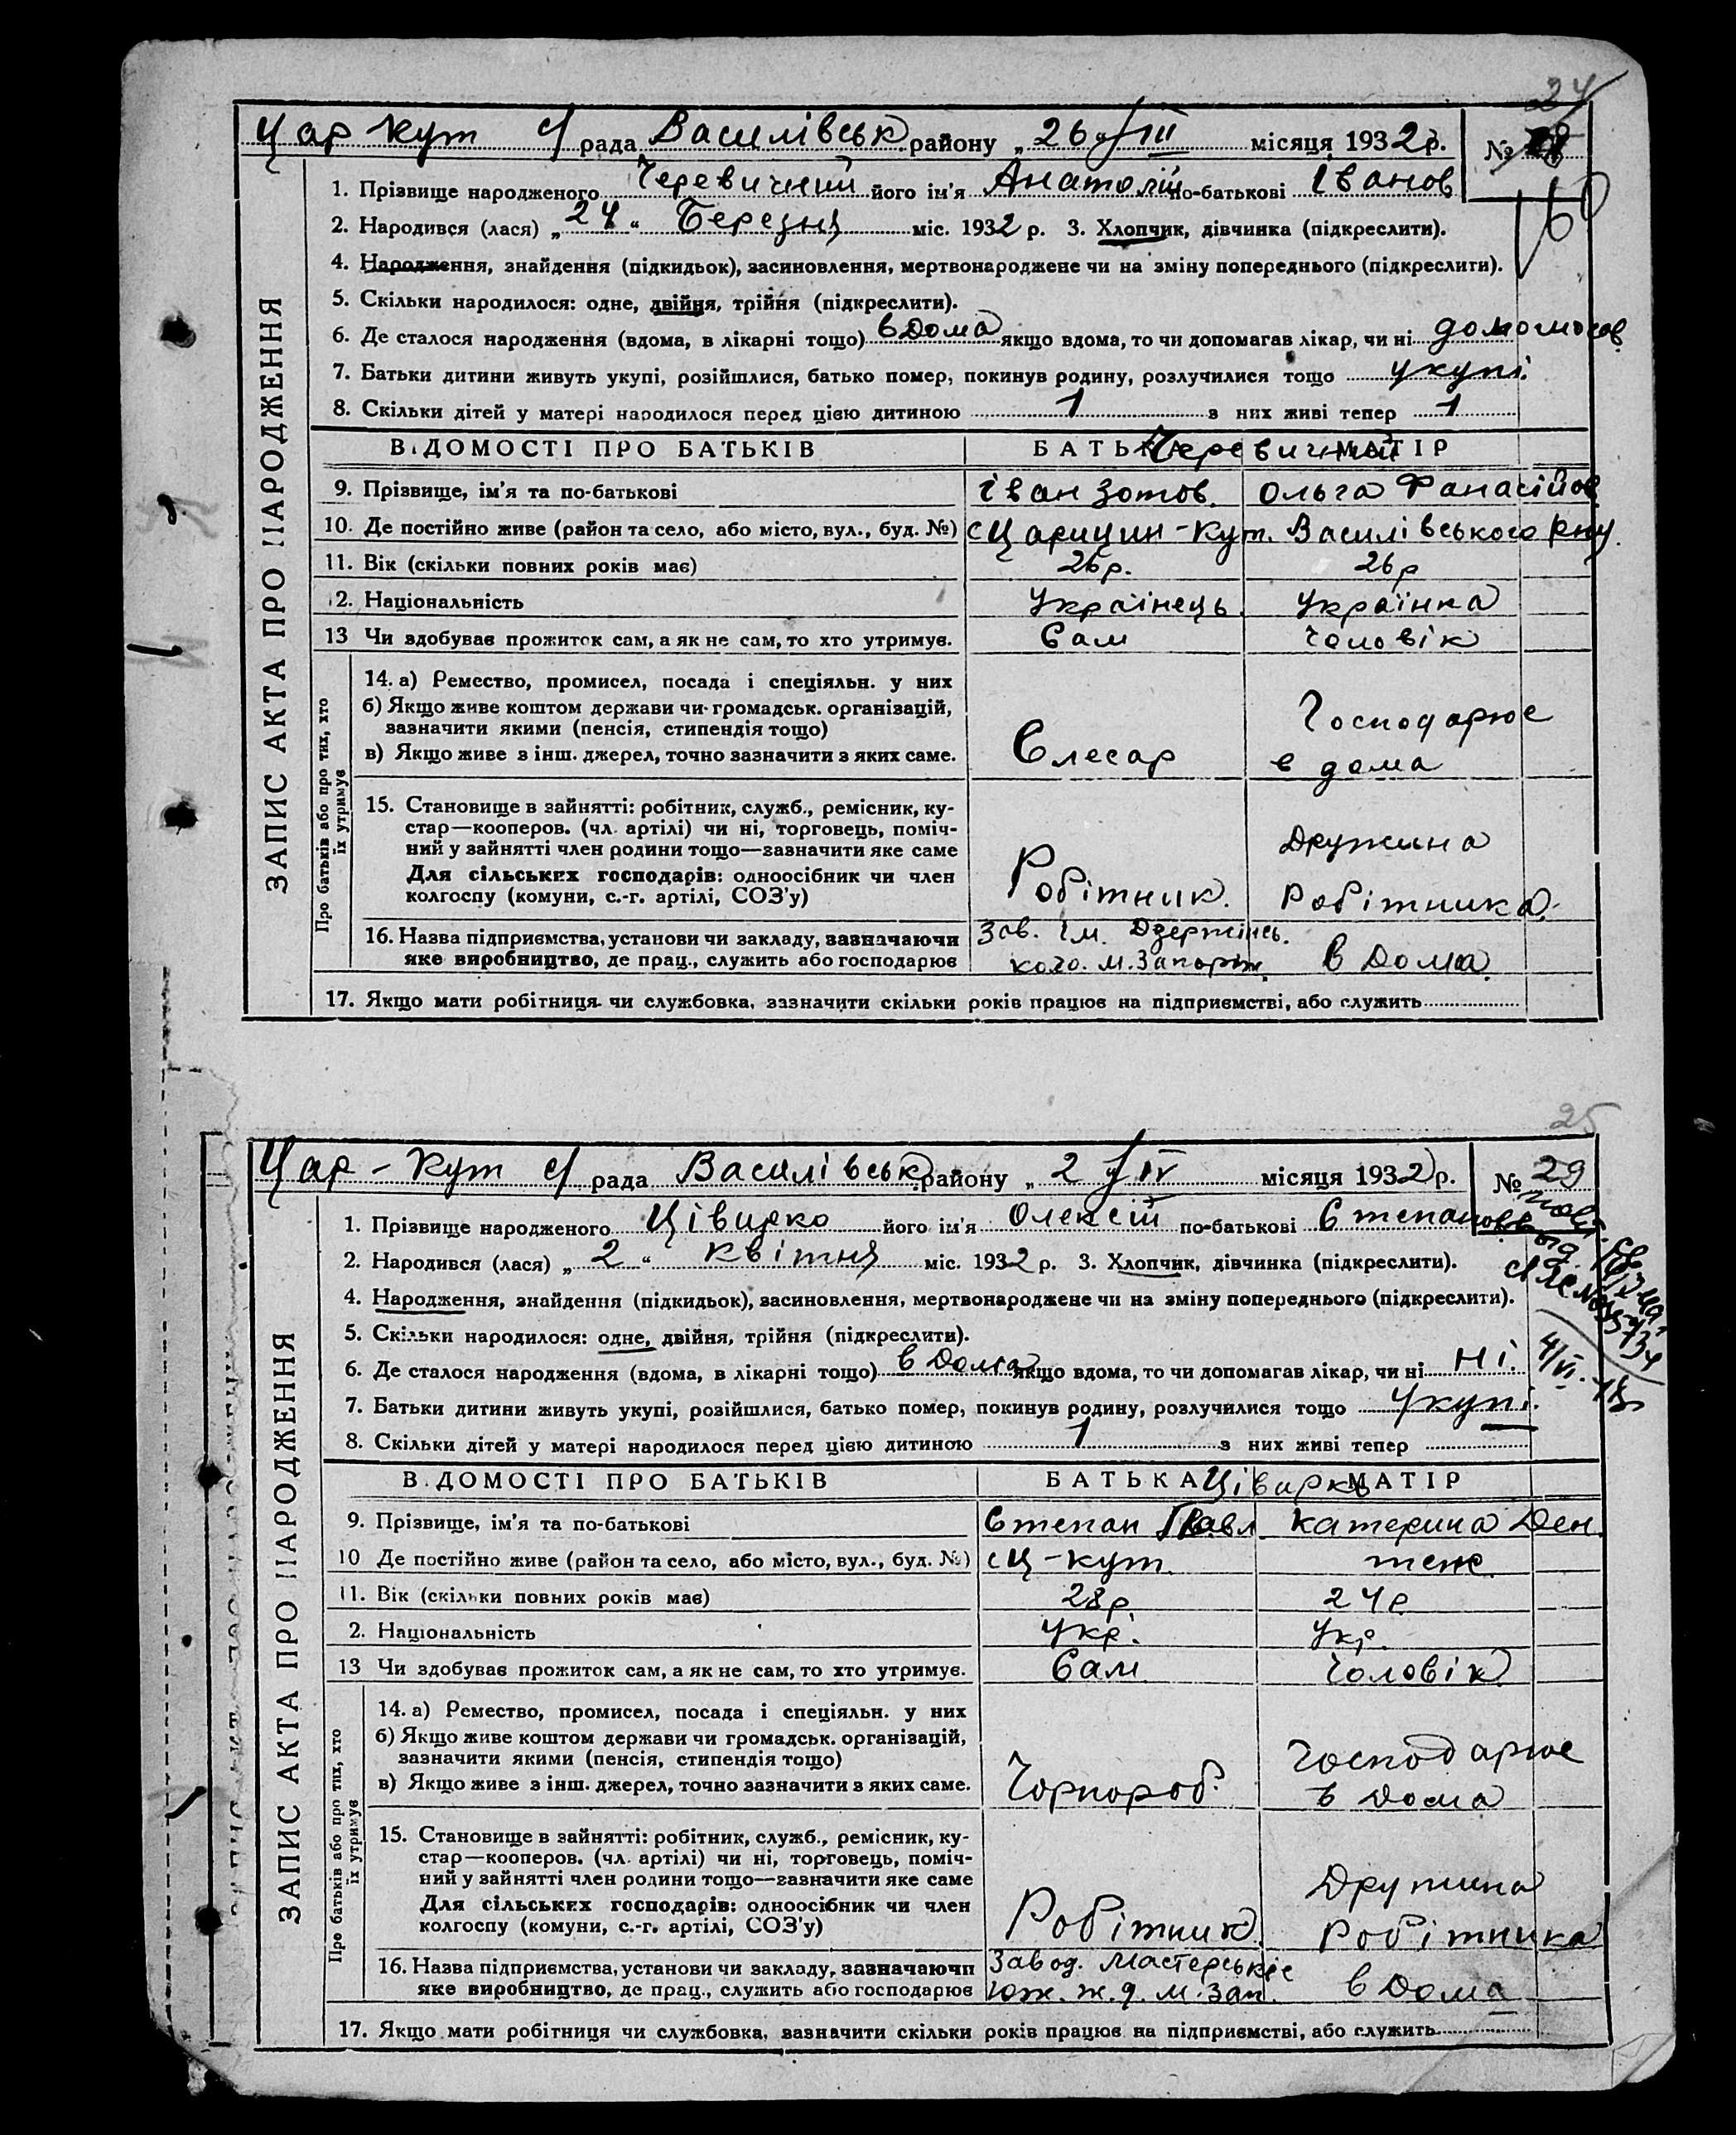 24
Цар Кут с/рада Василівськ району „26“/III місяця 1932 р. №
1. Прізвище народженого Черевичний його ім'я Анатолій по-батькові Іванов
2. Народився (лася) „24“ Березня міс. 1932 р. 3. Хлопчик, дівчинка (підкреслити).
4. Народження, знайдення (підкидьок), засиновлення, мертвонароджене чи на зміну попереднього (підкреслити).
5. Скільки народилося: одне, двійня, трійня (підкреслити).
6. Де сталося народження (вдома, в лікарні тощо) в дома якщо вдома, то чи допомагав лікар, чи ні
7. Батьки дитини живуть укупі, розійшлися, батько помер, покинув родину, розлучилися тощо укупі.
8. Скільки дітей у матері народилося перед цією дитиною 1 з них живі тепер 1
ЗАПИС АКТА ПРО НАРОДЖЕННЯ
ВІДОМОСТІ ПРО БАТЬКІВ БАТЬКА Черевичний МАТІР
9. Прізвище, ім'я та по-батькові Іван Зотов. Ольга Фанасійов
10. Де постійно живе (район та село, або місто, вул., буд. №) с Царицин-Кут. Василівського р-ну.
11. Вік (скільки повних років має) 26 р. 26 р
12. Національність Українець. Українка
13 Чи здобував прожиток сам, а як не сам, то хто утримує. Сам Чоловік
Про батьків або про тих, хто їх утримує
14. а) Ремество, промисел, посада і спеціяльн. у них
б) Якщо живе коштом держави чи громадськ. організацій,
зазначити якими (пенсія, стипендія тощо)
в) Якщо живе з інш. джерел, точно зазначити з яких саме. Слесар Господарює в дома
15. Становище в зайнятті: робітник, служб., ремісник, ку-
стар—кооперов. (чл. артілі) чи ні, торговець, поміч-
ний у зайнятті член родини тощо—зазначити яке саме
Для сільських господарів: одноосібник чи член
колгоспу (комуни, с.-г. артілі, СОЗ'у) Робітник. Дружина Робітника.
16. Назва підприємства, установи чи закладу, зазначаючи Зав. Ім. Дзержінсь.
яке виробництво, де прац., служить або господарює кого. м. Запоріж. в Дома.
17. Якщо мати робітниця чи службовка, зазначити скільки років працює на підприємстві, або служить
25
Цар-Кут с/рада Василівськ району „2“/IV місяця 1932 р. № 29
1. Прізвище народженого Ціварко його ім'я Олексій по-батькові Степанов
2. Народився (лася) „2“ квітня міс. 1932 р. 3. Хлопчик, дівчинка (підкреслити).
4. Народження, знайдення (підкидьок), засиновлення, мертвонароджене чи на зміну попереднього (підкреслити).
5. Скільки народилося: одне, двійня, трійня (підкреслити).
6. Де сталося народження (вдома, в лікарні тощо) в Дома якщо вдома, то чи допомагав лікар, чи ні ні.
7. Батьки дитини живуть укупі, розійшлися, батько помер, покинув родину, розлучилися тощо укупі.
8. Скільки дітей у матері народилося перед цією дитиною 1 з них живі тепер
ЗАПИС АКТА ПРО НАРОДЖЕННЯ
ВІДОМОСТІ ПРО БАТЬКІВ БАТЬКА Ціварко МАТІР
9. Прізвище, ім'я та по-батькові Степан Павл Катерина Ден.
10 Де постійно живе (район та село, або місто, вул., буд. №) с Ц-кут. теж
11. Вік (скільки повних років має) 28 р 24 р
2. Національність Укр. Укр.
13 Чи здобував прожиток сам, а як не сам, то хто утримує. Сам Чоловік
Про батьків або про тих, хто їх утримує
14. а) Ремество, промисел, посада і спеціяльн. у них
б) Якщо живе коштом держави чи громадськ. організацій,
зазначити якими (пенсія, стипендія тощо)
в) Якщо живе з інш. джерел, точно зазначити з яких саме. Чорнороб. Господарює в Дома
15. Становище в зайнятті: робітник, служб., ремісник, ку-
стар—кооперов. (чл. артілі) чи ні, торговець, поміч-
ний у зайнятті член родини тощо—зазначити яке саме
Для сільських господарів: одноосібник чи член
колгоспу (комуни, с.-г. артілі, СОЗ'у) Робітник. Дружина Робітника
16. Назва підприємства, установи чи закладу, зазначаючи Завод. Мастерськіе
яке виробництво, де прац., служить або господарює Юж. ж. д. м. Зап. в Дома
17. Якщо мати робітниця чи службовка, зазначити скільки років працює на підприємстві, або служить